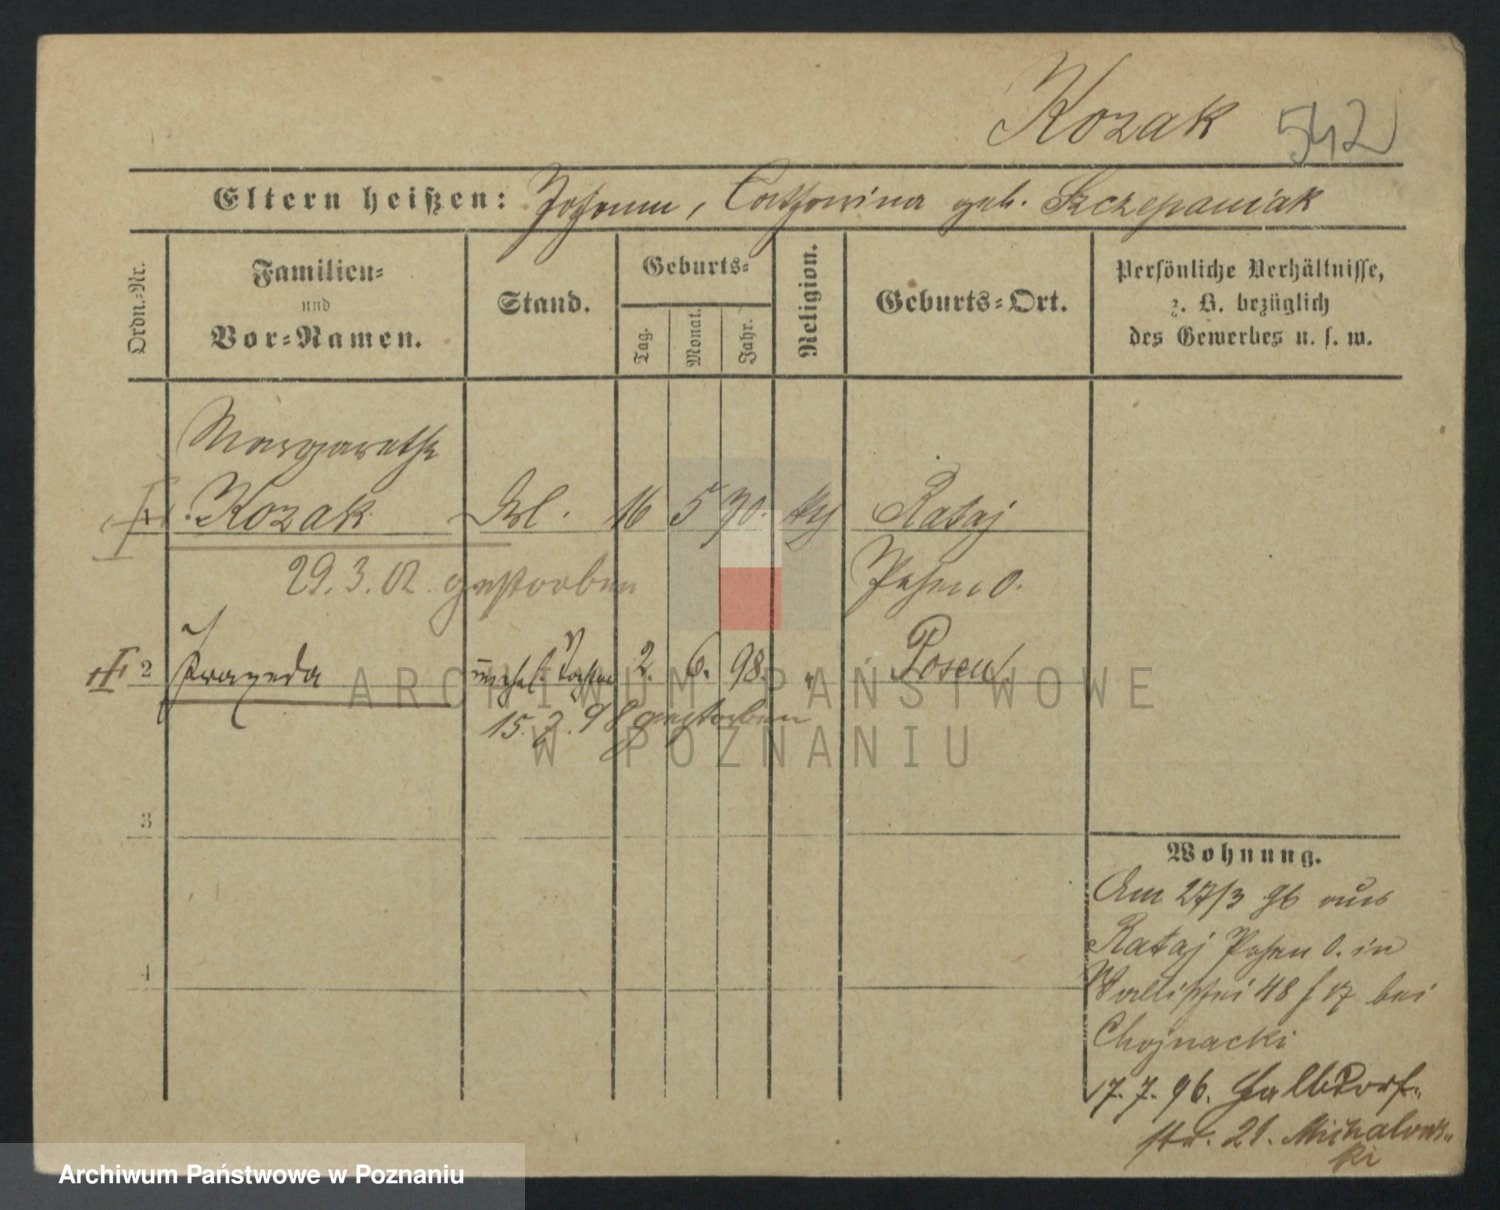 Kozak 542
Eltern heißen: Johann, Catharina geb. Szczepaniak
Ordn.-Nr.
Familien-
und
Vor-Namen.
Stand.
Geburts-
Tag.
Monat.
Jahr.
Religion.
Geburts-Ort.
Persönliche Verhältnisse,
z. B. bezüglich
des Gewerbes u. s. w.
Margarethe
I 1. Kozak 16 5 70. Rataj
29.3.02. gestorben Posen O.
II 2 Praxeda unehel. Tochter 2. 6. 98. " Posen
15. 7. 98 gestorben
ARCHIWUM PAŃSTWOWE
W POZNANIU
3
4
Wohnung.
Am 27/3 96 aus
Rataj Posen O. in
Wallischei 48 f 17 bei
Chojnacki
17. 7. 96. Halbdorf-
str. 21. Michalows-
ki
Archiwum Państwowe w Poznaniu